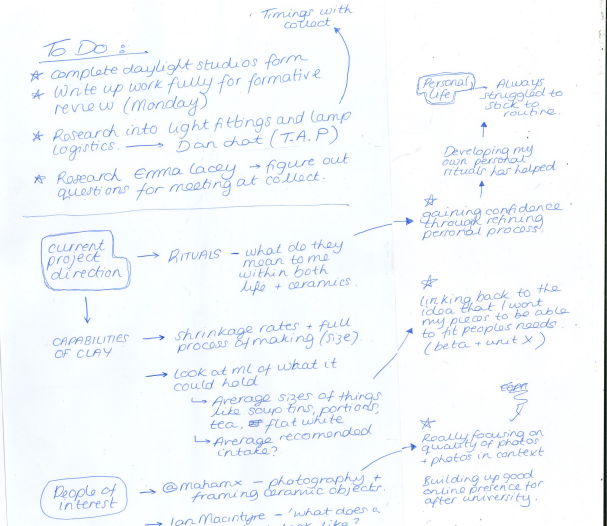 Timings with
collect.
To Do :
☆ Complete daylight studios form
☆ Write up work fully for formative
review (Monday)
☆ Research into light fittings and lamp
logistics. → Dan chat (T.A.P)
☆ Research Emma Lacey → figure out
questions for meeting at collect.
Personal
life → Always
struggled to
stick to
routine.
Developing my
own personal
rituals has helped
☆
gaining confidence
through refining
personal process.
current
project
direction
→ RITUALS - what do they
mean to me
within both
life + ceramics.
☆
linking back to the
idea that I want
my pieces to be able
to fit peoples needs.
(beta + unit X)
CAPABILITIES
OF CLAY
→ shrinkage rates + full
process of making (size).
→ Look at ml of what it
could hold
↳ Average sizes of things
like soup tins, portions,
tea, flat white
↳ Average recomended
intake?
☆
Really focusing on
quality of photos
+ photos in context
Building up good
online presence for
after university.
People of
interest
→ @mahamx - photography +
framing ceramic objects.
→ Ian Macintyre - 'what does a
look like?